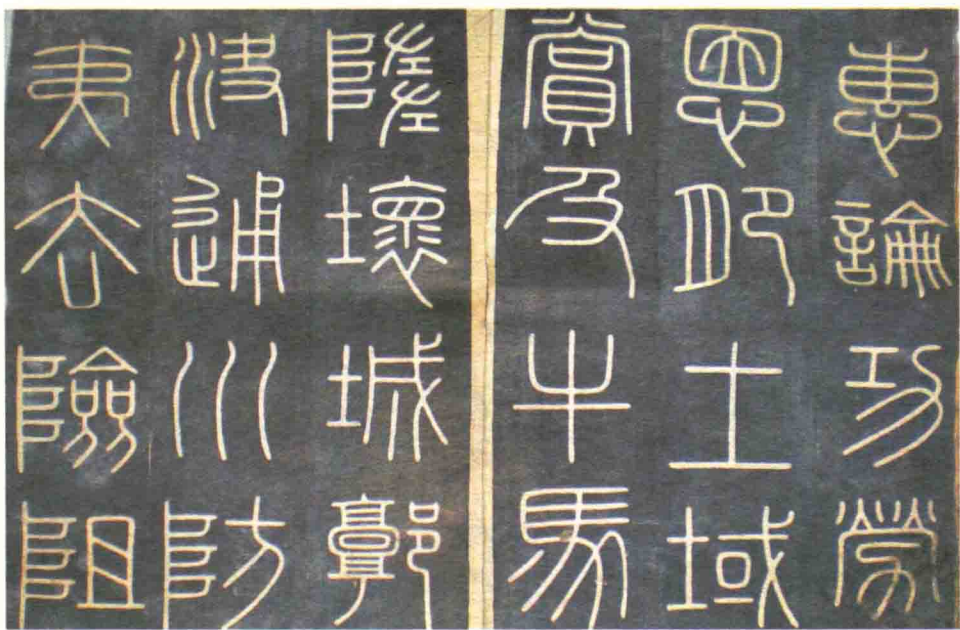 惠論功勞
恩肥土域
賞及牛馬
隓壞城郭
決通川防
夷去險阻